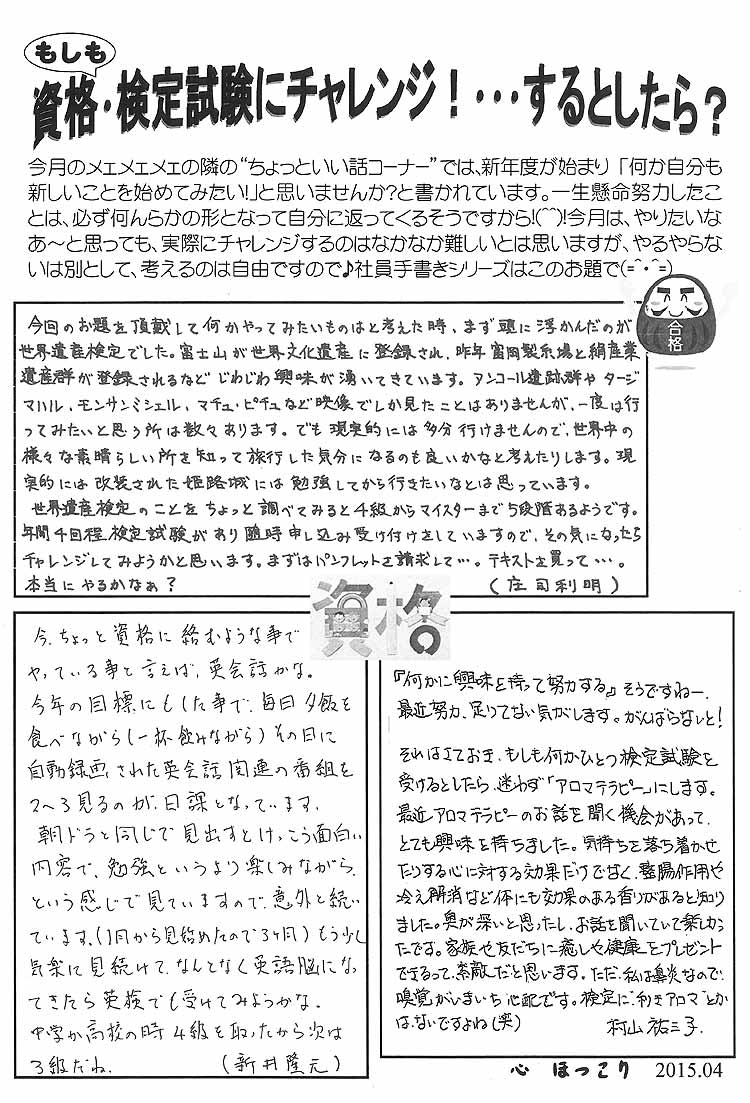 もしも
資格・検定試験にチャレンジ！・・・するとしたら？
今月のメェメェメェの隣の“ちょっといい話コーナー”では、新年度が始まり「何か自分も
新しいことを始めてみたい!」と思いませんか?と書かれています。一生懸命努力したこ
とは、必ず何んらかの形となって自分に返ってくるそうですから!(^^)!今月は、やりたいな
あ～と思っても、実際にチャレンジするのはなかなか難しいとは思いますが、やるやらな
いは別として、考えるのは自由ですので♪社員手書きシリーズはこのお題で(=^・^=)
合格
今回のお題を頂戴して何かやってみたいものはと考えた時、まず頭に浮かんだのが
世界遺産検定でした。富士山が世界文化遺産に登録され、昨年富岡製糸場と絹産業
遺産群が登録されるなどじわじわ興味が湧いてきています。アンコール遺跡群やタージ
マハル、モンサンミシェル、マチュ・ピチュなど映像でしか見たことはありませんが、一度は行
ってみたいと思う所は数々あります。でも現実的には多分行けませんので、世界中の
様々な素晴らしい所を知って旅行した気分になるのも良いかなと考えたりします。現
実的には改装された姫路城には勉強してから行きたいなとは思っています。
世界遺産検定のことをちょっと調べてみると4級からマイスターまで5段階あるようです。
年間4回程検定試験があり随時申し込み受け付けをしていますので、その気になったら
チャレンジしてみようかと思います。まずはパンフレットを請求して…。テキストを買って…。
本当にやるかなぁ？
(庄司利明)
資格
今、ちょっと資格に絡むような事で
やっている事と言えば、英会話かな。
今年の目標にもした事で、毎日夕飯を
食べながら(一杯飲みながら)その日に
自動録画された英会話関連の番組を
2～3見るのが、日課となっています。
朝ドラと同じで見出すとけっこう面白い
内容で、勉強というより楽しみながら、
という感じで見ていますので、意外と続い
ています。(1月から見始めたので3ヶ月)もう少し
気楽に見続けて、なんとなく英語脳になっ
てきたら英検でも受けてみようかな。
中学か高校の時4級を取ったから次は
3級だね。
(新井隆元)
『何かに興味を持って努力する』そうですねー、
最近努力、足りてない気がします。がんばらないと！
それはさておき、もしも何かひとつ検定試験を
受けるとしたら、迷わず「アロマテラピー」にします。
最近アロマテラピーのお話を聞く機会があって、
とても興味を持ちました。気持ちを落ち着かせ
たりする心に対する効果だけでなく、整腸作用や
冷え解消など体にも効果のある香りがあると知り
ました。奥が深いと思ったし、お話を聞いていて楽しかっ
たです。家族や友だちに癒しや健康をプレゼント
できるって、素敵だと思います。ただ、私は鼻炎なので、
嗅覚がいまいち心配です。検定に“利きアロマ”とか
は、ないですよね(笑)
村山祐三子
心 ほっこり 2015.04